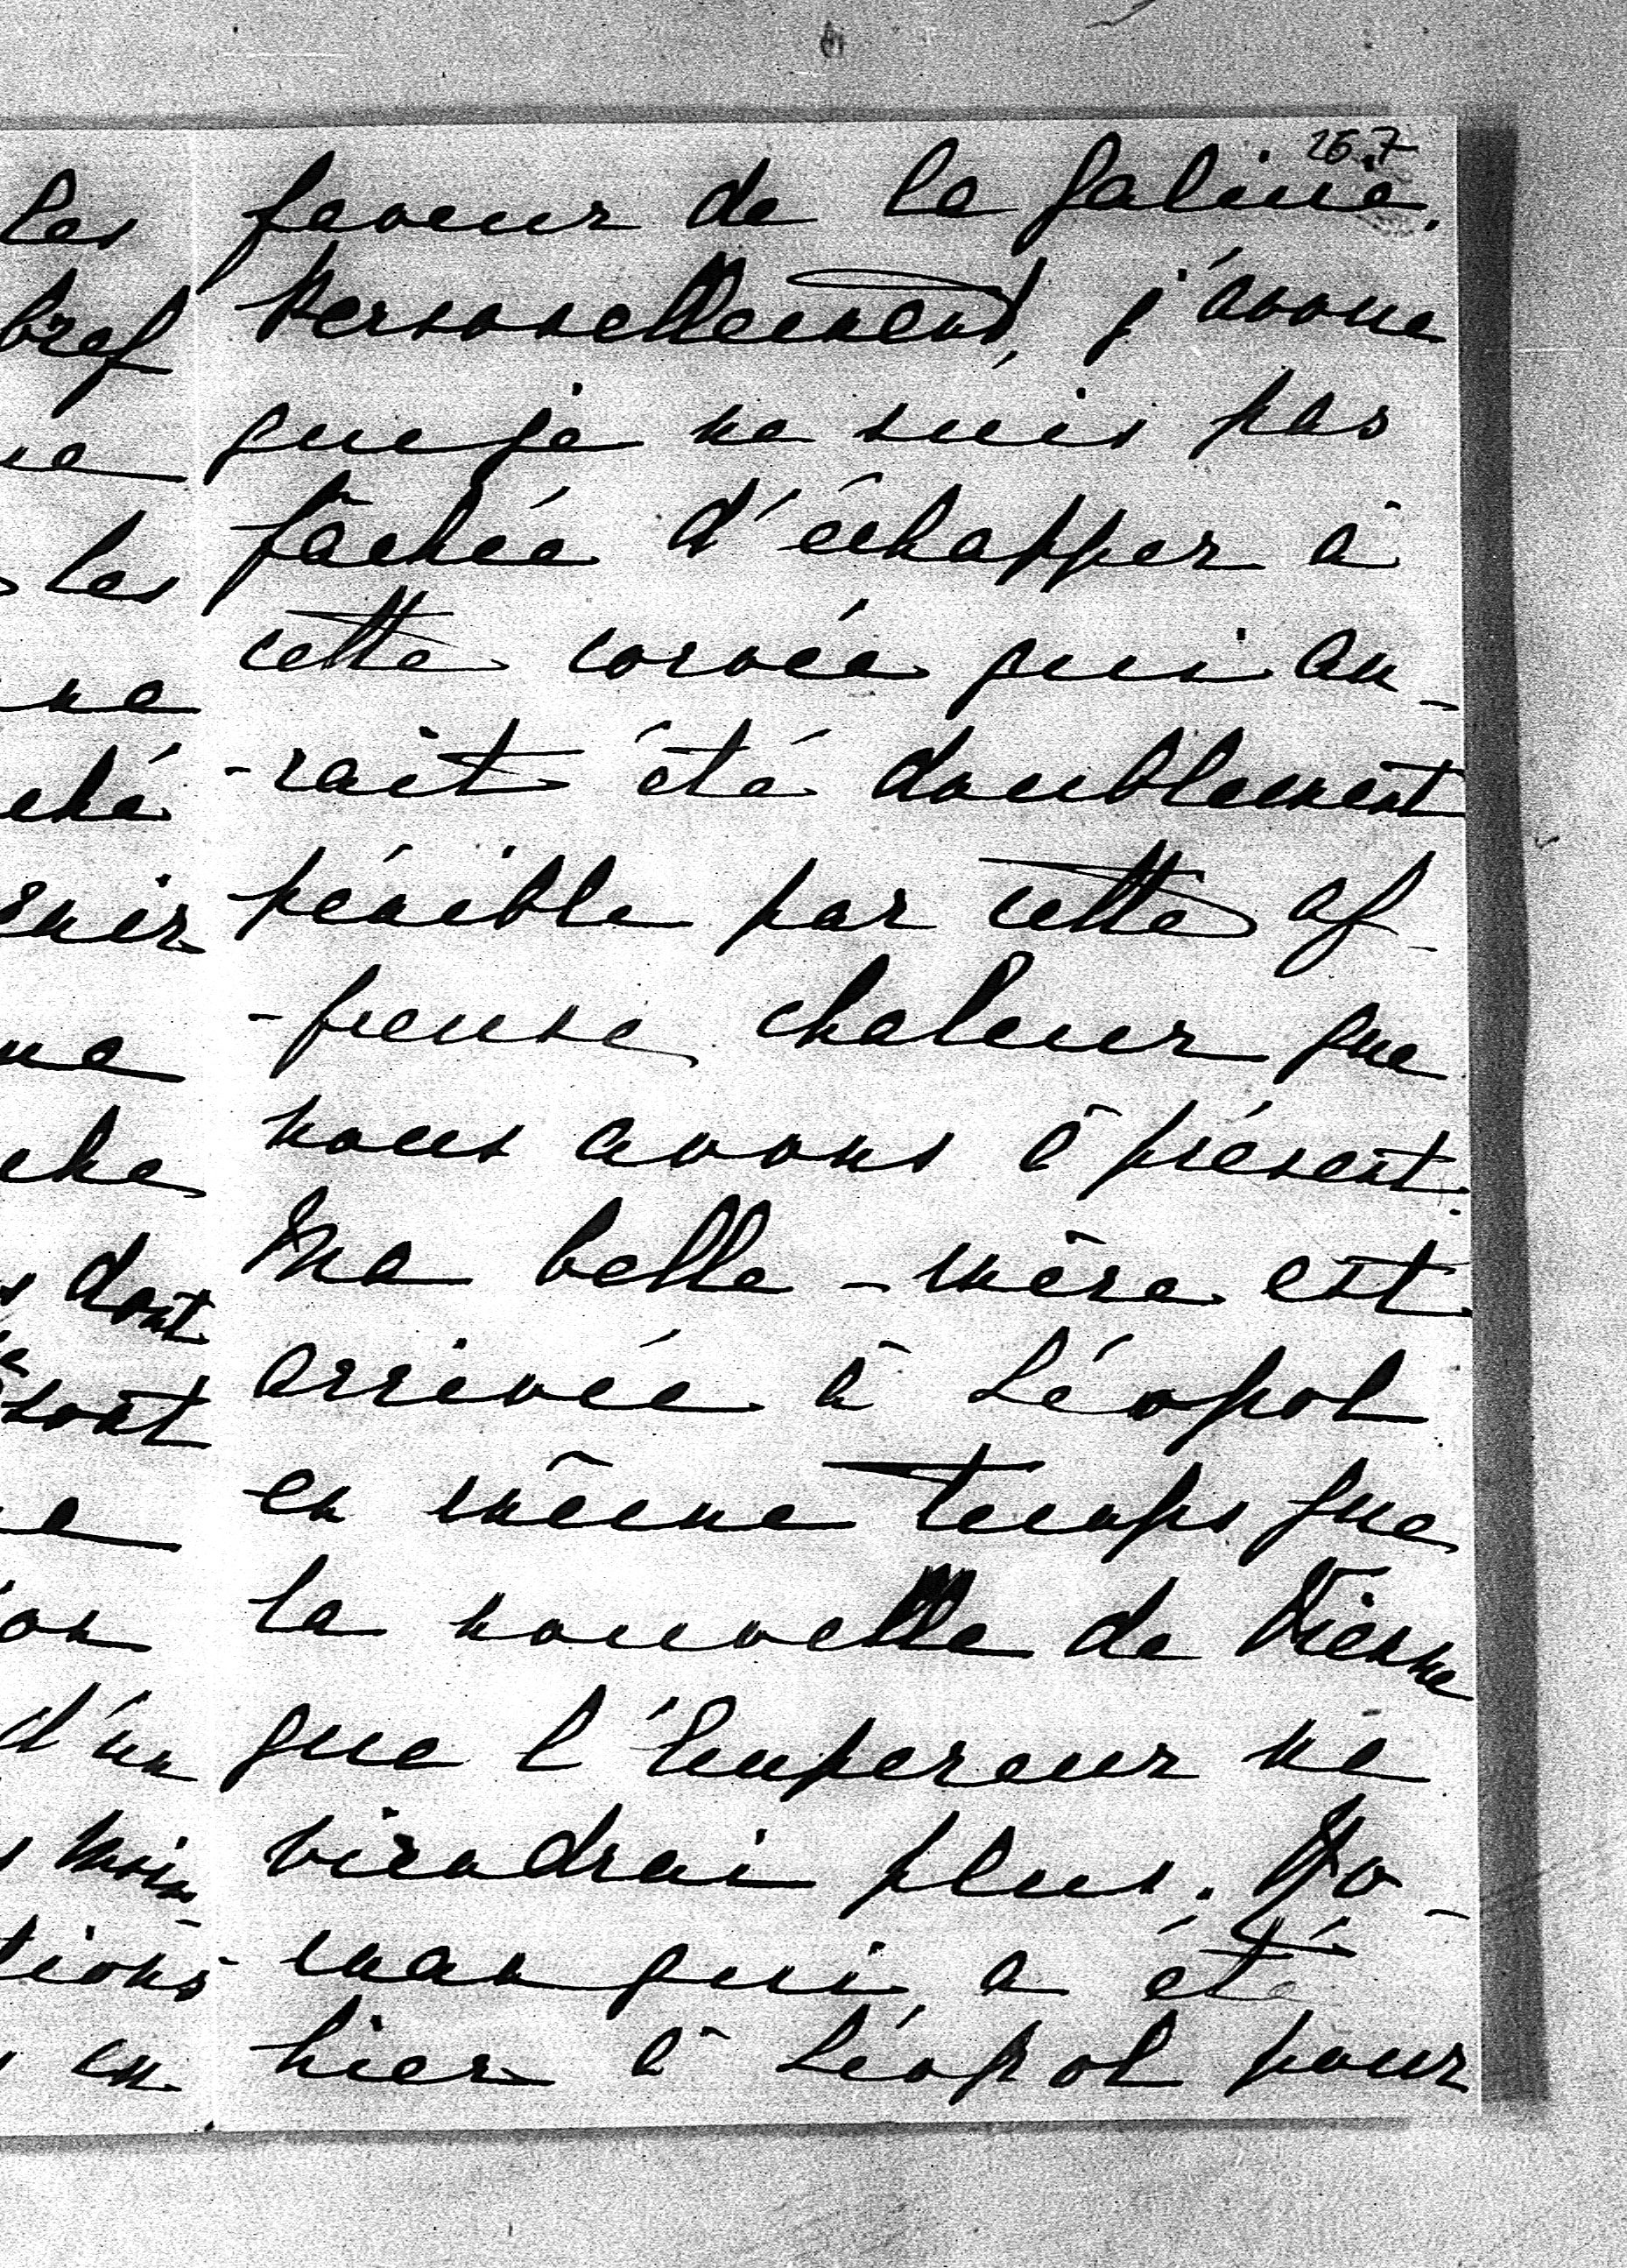 les
bref
ne
les
ne
ché
enir
ne
che
dont
sont
on
d'un
moins
tions
en
26.7
faveur de la
Personellement, j'avoue
que je ne suis pas
fâchée d'échapper à
cette corvée qui au-
-rait été doublement
pénible par cette af-
-freuse chaleur que
nous avons à présent.
Ma belle-mère est
arrivée à Léopol
en même temps que
la nouvelle de Vienne
que l'Empereur ne
viendrai plus. Ro-
man qui a été
hier à Léopol pour